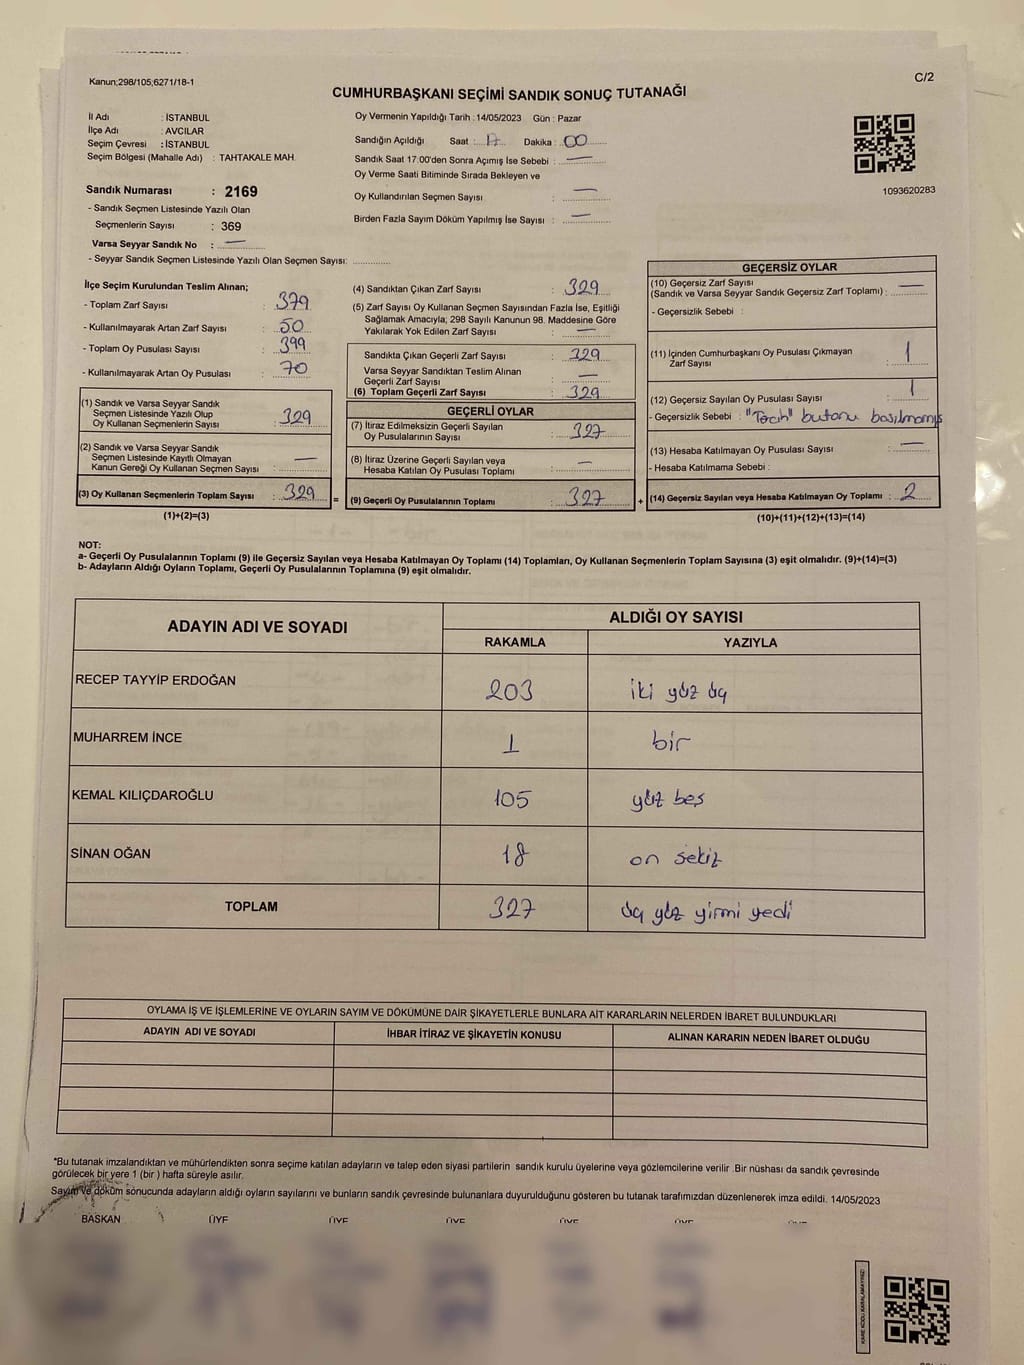 Kanun;298/105;6271/18-1
C/2
CUMHURBAŞKANI SEÇİMİ SANDIK SONUÇ TUTANAĞI
İl Adı : İSTANBUL
İlçe Adı : AVCILAR
Seçim Çevresi : İSTANBUL
Seçim Bölgesi (Mahalle Adı) : TAHTAKALE MAH.
Sandık Numarası : 2169
- Sandık Seçmen Listesinde Yazılı Olan
Seçmenlerin Sayısı : 369
Varsa Seyyar Sandık No : —
- Seyyar Sandık Seçmen Listesinde Yazılı Olan Seçmen Sayısı:
Oy Vermenin Yapıldığı Tarih : 14/05/2023 Gün : Pazar
Sandığın Açıldığı Saat : 17 Dakika : 00
Sandık Saat 17:00'den Sonra Açımış İse Sebebi : —
Oy Verme Saati Bitiminde Sırada Bekleyen ve
Oy Kullandırılan Seçmen Sayısı : —
Birden Fazla Sayım Döküm Yapılmış İse Sayısı : —
1093620283
İlçe Seçim Kurulundan Teslim Alınan;
- Toplam Zarf Sayısı : 379
- Kullanılmayarak Artan Zarf Sayısı : 50
- Toplam Oy Pusulası Sayısı : 399
- Kullanılmayarak Artan Oy Pusulası : 70
(1) Sandık ve Varsa Seyyar Sandık
Seçmen Listesinde Yazılı Olup
Oy Kullanan Seçmenlerin Sayısı : 329
(2) Sandık ve Varsa Seyyar Sandık
Seçmen Listesinde Kayıtlı Olmayan
Kanun Gereği Oy Kullanan Seçmen Sayısı : —
(3) Oy Kullanan Seçmenlerin Toplam Sayısı : 329
(1)+(2)=(3)
(4) Sandıktan Çıkan Zarf Sayısı : 329
(5) Zarf Sayısı Oy Kullanan Seçmen Sayısından Fazla İse, Eşitliği
Sağlamak Amacıyla; 298 Sayılı Kanunun 98. Maddesine Göre
Yakılarak Yok Edilen Zarf Sayısı : —
Sandıkta Çıkan Geçerli Zarf Sayısı : 329
Varsa Seyyar Sandıktan Teslim Alınan
Geçerli Zarf Sayısı : —
(6) Toplam Geçerli Zarf Sayısı : 329
GEÇERLİ OYLAR
(7) İtiraz Edilmeksizin Geçerli Sayılan
Oy Pusulalarının Sayısı : 327
(8) İtiraz Üzerine Geçerli Sayılan veya
Hesaba Katılan Oy Pusulası Toplamı : —
= (9) Geçerli Oy Pusulalarının Toplamı : 327 +
GEÇERSİZ OYLAR
(10) Geçersiz Zarf Sayısı
(Sandık ve Varsa Seyyar Sandık Geçersiz Zarf Toplamı) : —
- Geçersizlik Sebebi :
(11) İçinden Cumhurbaşkanı Oy Pusulası Çıkmayan
Zarf Sayısı : 1
(12) Geçersiz Sayılan Oy Pusulası Sayısı : 1
- Geçersizlik Sebebi : "Tercih" butonu basılmamış
(13) Hesaba Katılmayan Oy Pusulası Sayısı : —
- Hesaba Katılmama Sebebi :
(14) Geçersiz Sayılan veya Hesaba Katılmayan Oy Toplamı : 2
(10)+(11)+(12)+(13)=(14)
NOT:
a- Geçerli Oy Pusulalarının Toplamı (9) ile Geçersiz Sayılan veya Hesaba Katılmayan Oy Toplamı (14) Toplamları, Oy Kullanan Seçmenlerin Toplam Sayısına (3) eşit olmalıdır. (9)+(14)=(3)
b- Adayların Aldığı Oyların Toplamı, Geçerli Oy Pusulalarının Toplamına (9) eşit olmalıdır.
ADAYIN ADI VE SOYADI
ALDIĞI OY SAYISI
RAKAMLA YAZIYLA
RECEP TAYYİP ERDOĞAN 203 iki yüz üç
MUHARREM İNCE 1 bir
KEMAL KILIÇDAROĞLU 105 yüz beş
SİNAN OĞAN 18 on sekiz
TOPLAM 327 üç yüz yirmi yedi
OYLAMA İŞ VE İŞLEMLERİNE VE OYLARIN SAYIM VE DÖKÜMÜNE DAİR ŞİKAYETLERLE BUNLARA AİT KARARLARIN NELERDEN İBARET BULUNDUKLARI
ADAYIN ADI VE SOYADI İHBAR İTİRAZ VE ŞİKAYETİN KONUSU ALINAN KARARIN NEDEN İBARET OLDUĞU
*Bu tutanak imzalandıktan ve mühürlendikten sonra seçime katılan adayların ve talep eden siyasi partilerin sandık kurulu üyelerine veya gözlemcilerine verilir .Bir nüshası da sandık çevresinde
görülecek bir yere 1 (bir ) hafta süreyle asılır.
Sayım ve döküm sonucunda adayların aldığı oyların sayılarını ve bunların sandık çevresinde bulunanlara duyurulduğunu gösteren bu tutanak tarafımızdan düzenlenerek imza edildi. 14/05/2023
BAŞKAN ÜYE ÜYE ÜYE ÜYE ÜYE
KARE KODU KARALAMAYINIZ!